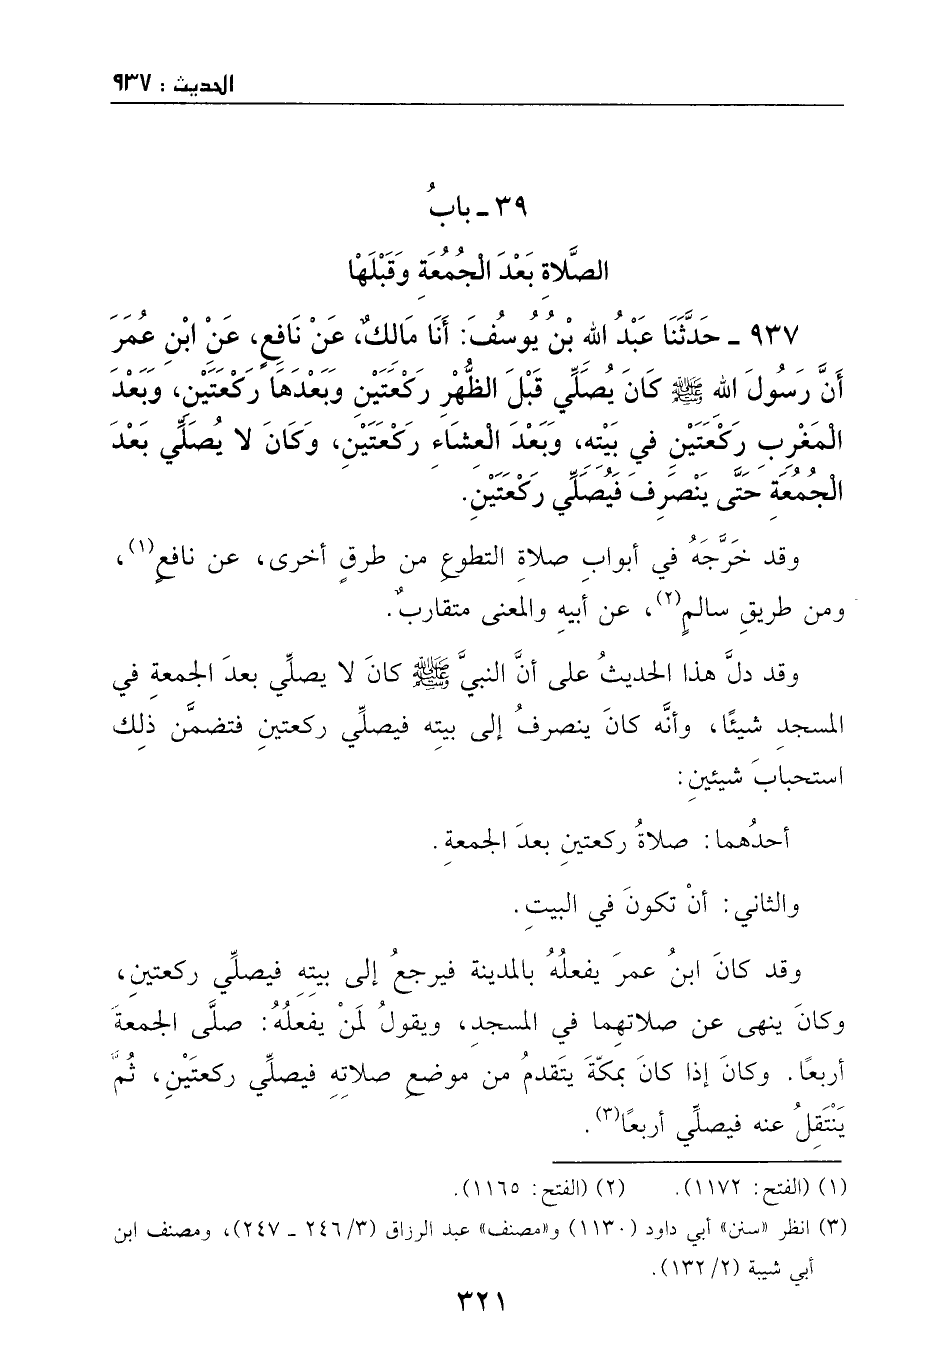 الحديث : ٩٣٧
٣٩ ـ بابُ
الصَّلاةِ بَعْدَ الْجُمُعَةِ وَقَبْلَهَا
٩٣٧ ـ حَدَّثَنَا عَبْدُ الله بْنُ يُوسُفَ: أَنَا مَالكٌ، عَنْ نَافِعٍ، عَنْ ابْنِ عُمَرَ
أَنَّ رَسُولَ الله ﷺ كَانَ يُصَلِّي قَبْلَ الظُّهْرِ رَكْعَتَيْنِ وَبَعْدَهَا رَكْعَتَيْنِ، وَبَعْدَ
الْمَغْرِبِ رَكْعَتَيْنِ في بَيْتِه، وَبَعْدَ الْعشَاءِ رَكْعَتَيْنِ، وَكَانَ لا يُصَلِّي بَعْدَ
الْجُمُعَةِ حَتَّى يَنْصَرِفَ فَيُصَلِّي رَكْعَتَيْنِ.
وقد خَرَّجَهُ في أبوابِ صلاةِ التطوعِ من طرقٍ أخرى، عن نافعٍ(١)،
ومن طريقِ سالمٍ(٢)، عن أبيهِ والمعنى متقاربٌ.
وقد دلَّ هذا الحديثُ على أنَّ النبيَّ ﷺ كانَ لا يصلِّي بعدَ الجمعةِ في
المسجدِ شيئًا، وأنَّه كانَ ينصرفُ إلى بيتِه فيصلِّي ركعتينِ فتضمَّن ذلِك
استحبابَ شيئينِ:
أحدُهما: صلاةُ ركعتينِ بعدَ الجمعةِ.
والثاني: أنْ تكونَ في البيتِ.
وقد كانَ ابنُ عمرَ يفعلُهُ بالمدينة فيرجعُ إلى بيتِهِ فيصلِّي ركعتينِ،
وكانَ ينهى عن صلاتهِما في المسجدِ، ويقولُ لمَنْ يفعلُهُ: صلَّى الجمعةَ
أربعًا. وكانَ إذا كانَ بمكّةَ يتَقدمُ من موضعِ صلاتِهِ فيصلِّي ركعتَيْنِ، ثُمَّ
يَنْتَقِلُ عنه فيصلِّي أربعًا(٣).
(١) (الفتح: ١١٧٢). (٢) (الفتح: ١١٦٥).
(٣) انظر «سنن» أبي داود (١١٣٠) و«مصنف» عبد الرزاق (٣/ ٢٤٦ ـ ٢٤٧)، ومصنف ابن
أبي شيبة (٢/ ١٣٢).
٣٢١